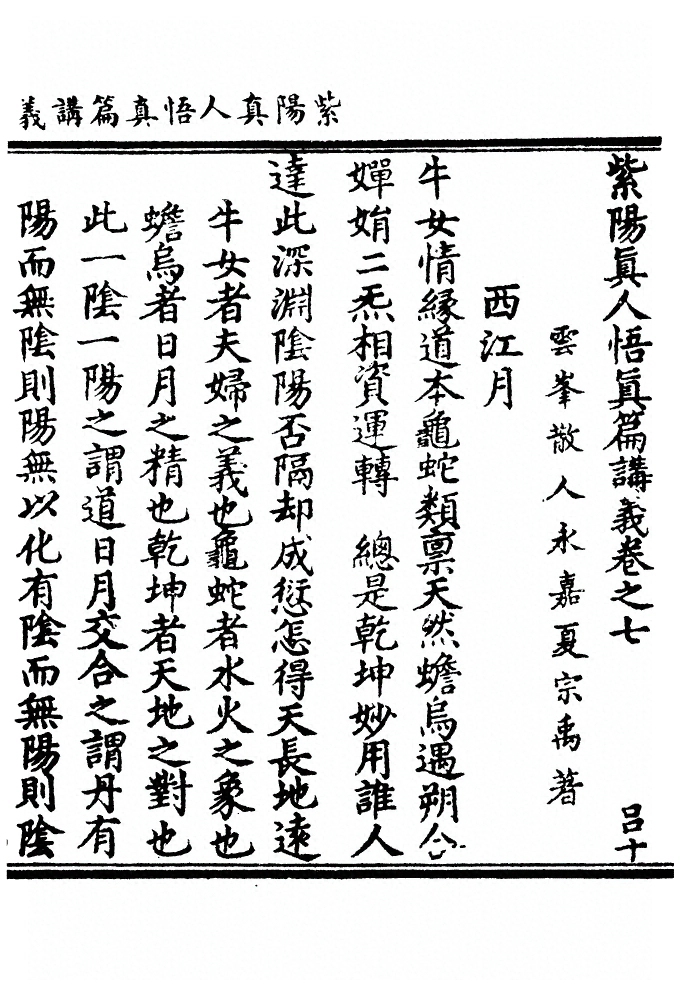 紫陽真人悟真篇講義
紫陽真人悟真篇講義卷之七 吕十
雲峯散人永嘉夏宗禹著
西江月
牛女情緣道本龜蛇類禀天然蟾烏遇朔合
嬋娟二炁相資運轉 總是乾坤妙用誰人
達此深淵陰陽否隔却成愆怎得天長地遠
牛女者夫婦之義也龜蛇者水火之象也
蟾烏者日月之精也乾坤者天地之對也
此一陰一陽之謂道日月交合之謂丹有
陽而無陰則陽無以化有陰而無陽則陰